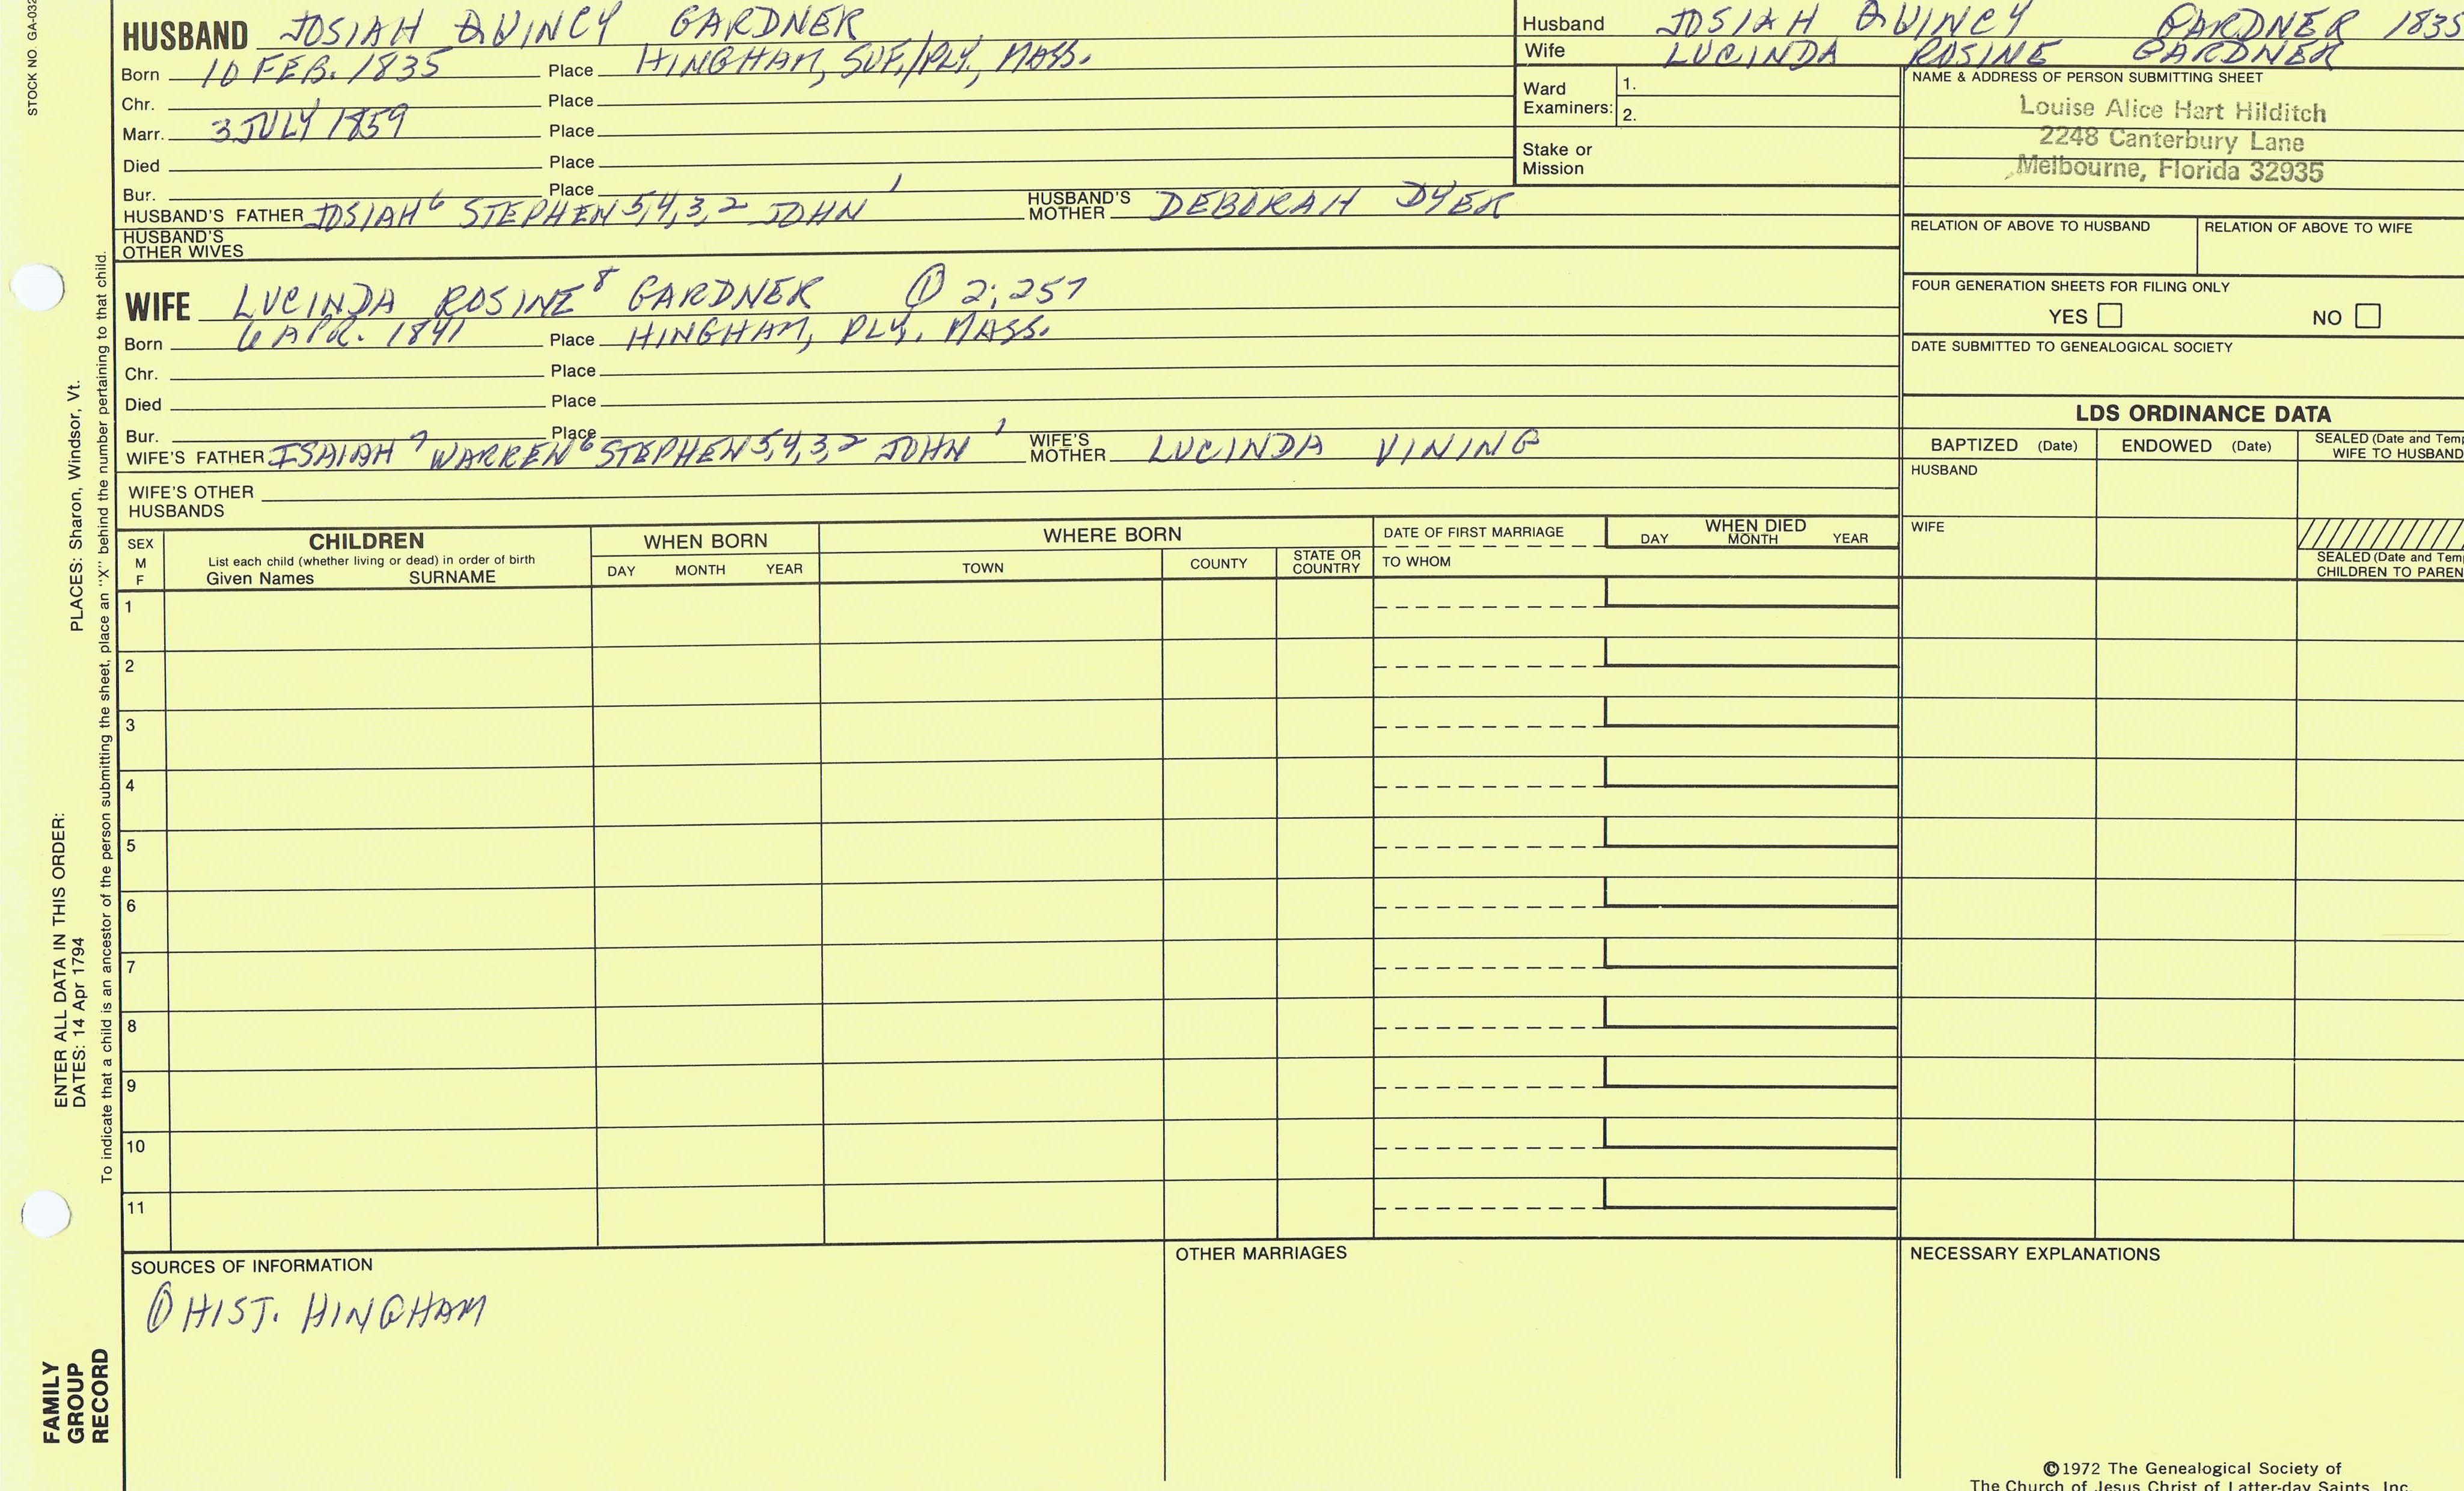 STOCK NO. GA-032
HUSBAND JOSIAH QUINCY GARDNER
Born 10 FEB. 1835 Place HINGHAM, SUF./PLY., MASS.
Chr. Place
Marr. 3 JULY 1859 Place
Died Place
Bur. Place
HUSBAND'S FATHER JOSIAH⁶ STEPHEN⁵,⁴,³,² JOHN¹ HUSBAND'S MOTHER DEBORAH DYER
HUSBAND'S OTHER WIVES
WIFE LUCINDA ROSINE⁸ GARDNER ① 2:257
Born 6 APR. 1841 Place HINGHAM, PLY. MASS.
Chr. Place
Died Place
Bur. Place
WIFE'S FATHER ISAIAH⁷ WARREN⁶ STEPHEN⁵,⁴,³,² JOHN¹ WIFE'S MOTHER LUCINDA VINING
WIFE'S OTHER HUSBANDS
Husband JOSIAH QUINCY GARDNER 1835
Wife LUCINDA ROSINE GARDNER
Ward Examiners: 1.
2.
Stake or Mission
NAME & ADDRESS OF PERSON SUBMITTING SHEET
Louise Alice Hart Hilditch
2248 Canterbury Lane
Melbourne, Florida 32935
RELATION OF ABOVE TO HUSBAND RELATION OF ABOVE TO WIFE
FOUR GENERATION SHEETS FOR FILING ONLY
YES NO
DATE SUBMITTED TO GENEALOGICAL SOCIETY
LDS ORDINANCE DATA
BAPTIZED (Date) ENDOWED (Date) SEALED (Date and Tem
WIFE TO HUSBAND
HUSBAND
WIFE
SEALED (Date and Tem
CHILDREN TO PAREN
SEX
M
F
CHILDREN
List each child (whether living or dead) in order of birth
Given Names SURNAME
WHEN BORN
DAY MONTH YEAR
WHERE BORN
TOWN COUNTY STATE OR COUNTRY
DATE OF FIRST MARRIAGE
TO WHOM
WHEN DIED
DAY MONTH YEAR
1
2
3
4
5
6
7
8
9
10
11
SOURCES OF INFORMATION
① HIST. HINGHAM
OTHER MARRIAGES
NECESSARY EXPLANATIONS
©1972 The Genealogical Society of
The Church of Jesus Christ of Latter-day Saints, Inc.
PLACES: Sharon, Windsor, Vt.
To indicate that a child is an ancestor of the person submitting the sheet, place an "X" behind the number pertaining to that child.
ENTER ALL DATA IN THIS ORDER:
DATES: 14 Apr 1794
FAMILY
GROUP
RECORD